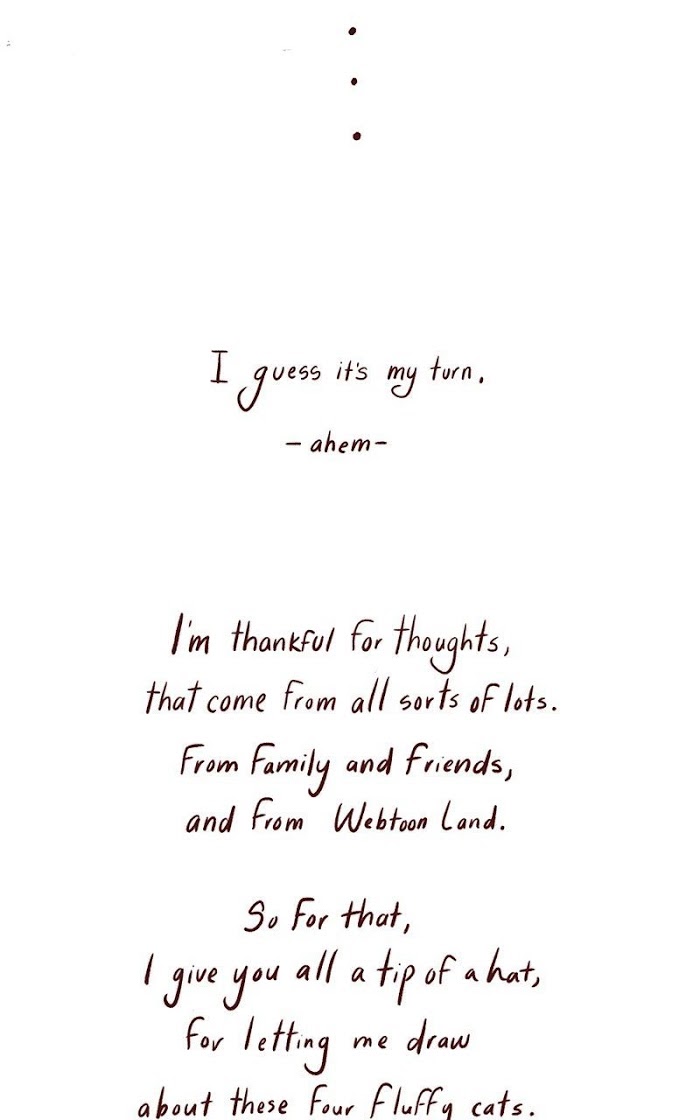 I guess it's my turn.
- ahem-
I'm thankful for thoughts,
that come from all sorts of lots.
From Family and friends,
and from Webtoon Land.
So for that,
I give you all a tip of a hat,
for letting me draw
about these four fluffy cats.